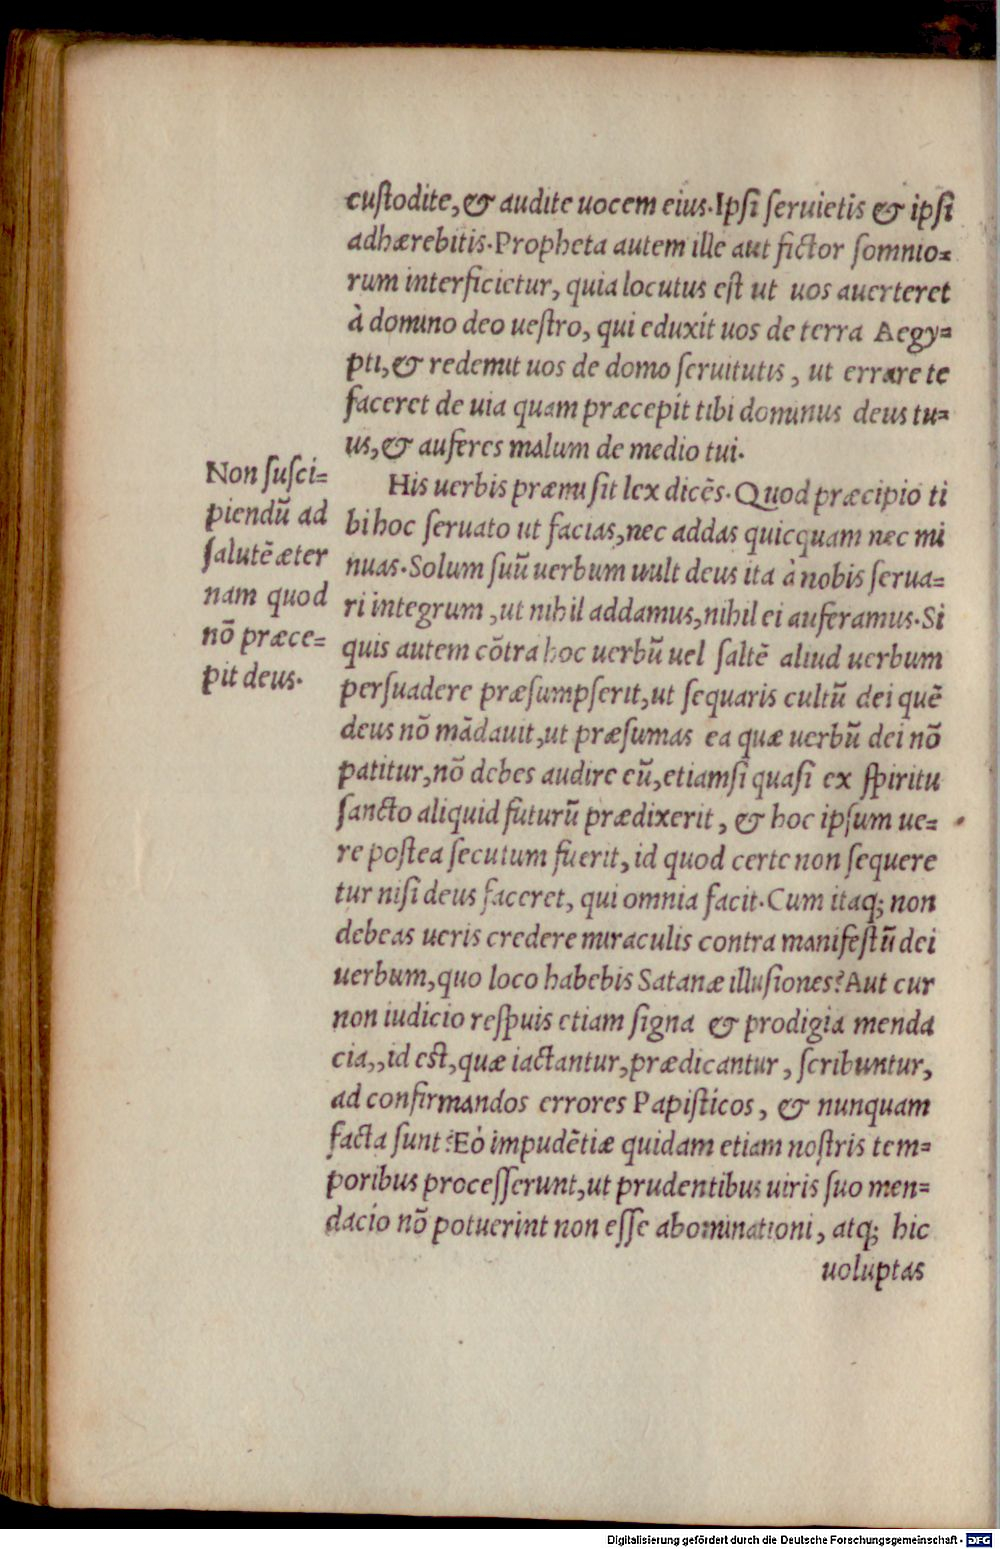 custodite, & audite uocem eius. Ipsi seruietis & ipsi
adhærebitis. Propheta autem ille aut fictor somnio=
rum interficietur, quia locutus est ut uos auerteret
à domino deo uestro, qui eduxit uos de terra Aegy=
pti, & redemit uos de domo seruitutis, ut errare te
faceret de uia quam præcepit tibi dominus deus tu=
us, & auferes malum de medio tui.
Non susci=
piendũ ad
salutẽ æter
nam quod
nõ præce=
pit deus.
His uerbis præmisit lex dicẽs. Quod præcipio ti
bi hoc seruato ut facias, nec addas quicquam nec mi
nuas. Solum suũ uerbum uult deus ita à nobis serua=
ri integrum, ut nihil addamus, nihil ei auferamus. Si
quis autem cõtra hoc uerbũ uel saltẽ aliud uerbum
persuadere præsumpserit, ut sequaris cultũ dei quẽ
deus nõ mãdauit, ut præsumas ea quæ uerbũ dei nõ
patitur, nõ debes audire eũ, etiamsi quasi ex spiritu
sancto aliquid futurũ prædixerit, & hoc ipsum ue=
re postea secutum fuerit, id quod certe non sequere
tur nisi deus faceret, qui omnia facit. Cum itaq; non
debeas ueris credere miraculis contra manifestũ dei
uerbum, quo loco habebis Satanæ illusiones? Aut cur
non iudicio respuis etiam signa & prodigia menda
cia,, id est, quæ iactantur, prædicantur, scribuntur,
ad confirmandos errores Papisticos, & nunquam
facta sunt? Eò impudẽtiæ quidam etiam nostris tem=
poribus processerunt, ut prudentibus uiris suo men=
dacio nõ potuerint non esse abominationi, atq; hic
uoluptas
Digitalisierung gefördert durch die Deutsche Forschungsgemeinschaft - DFG